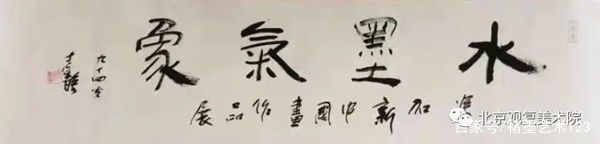 水墨氣象
新中國畫作品展
九十四叟
北京观复美术院
百家号/格墨艺术123